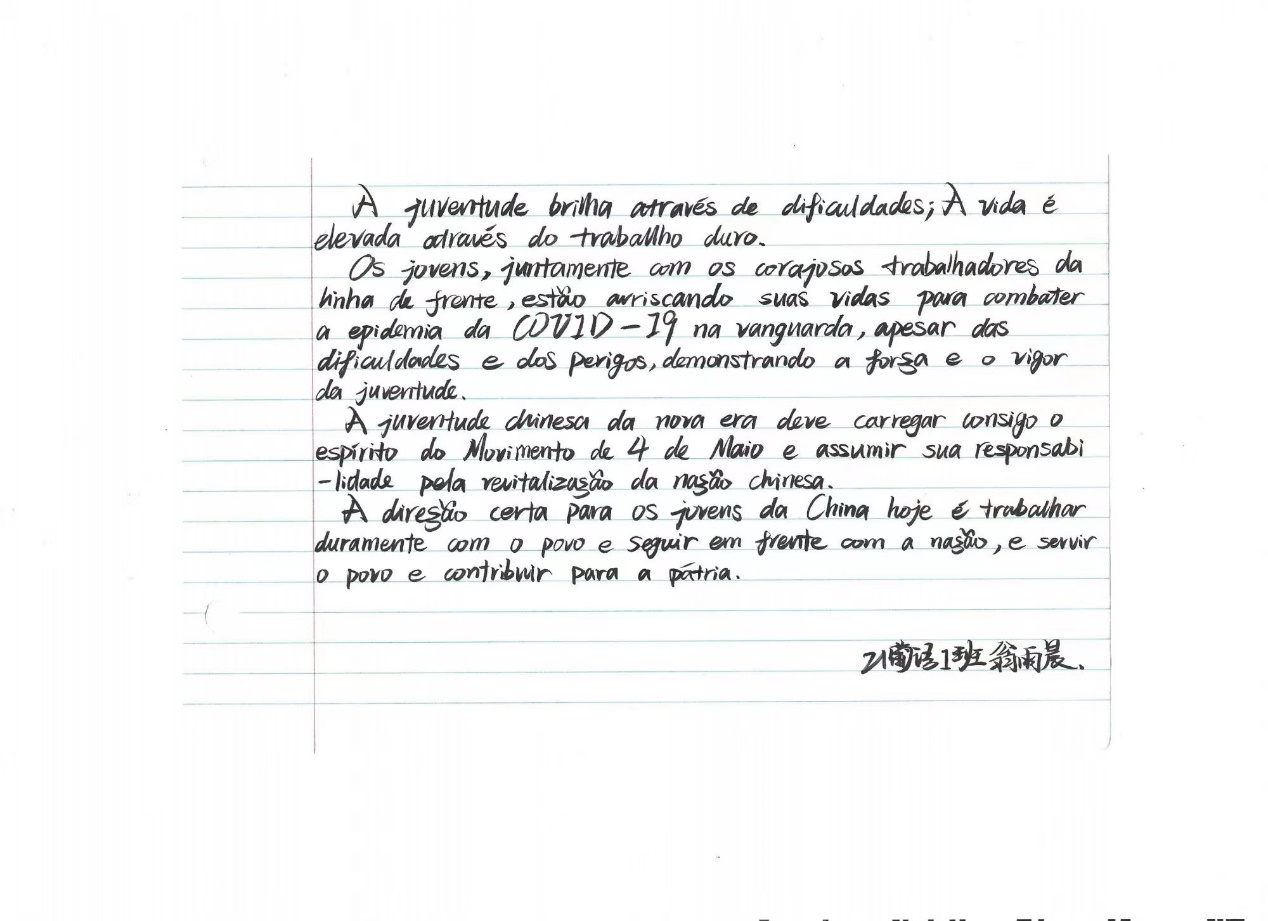 A juventude brilha através de dificuldades; A vida é
elevada através do trabalho duro.
Os jovens, juntamente com os corajosos trabalhadores da
linha de frente, estão arriscando suas vidas para combater
a epidemia da COVID-19 na vanguarda, apesar das
dificuldades e dos perigos, demonstrando a força e o vigor
da juventude.
A juventude chinesa da nova era deve carregar consigo o
espírito do Movimento de 4 de Maio e assumir sua responsabi
-lidade pela revitalização da nação chinesa.
A direção certa para os jovens da China hoje é trabalhar
duramente com o povo e seguir em frente com a nação, e servir
o povo e contribuir para a pátria.
21葡语1班 翁雨晨.